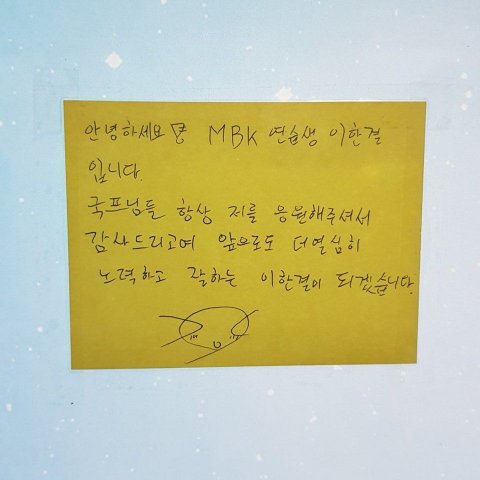 안녕하세요 MBK 연습생 이한결
입니다.
국프님들 항상 저를 응원해주셔서
감사드리고여 앞으로도 더열심히
노력하고 잘하는 이한결이 되겠습니다.